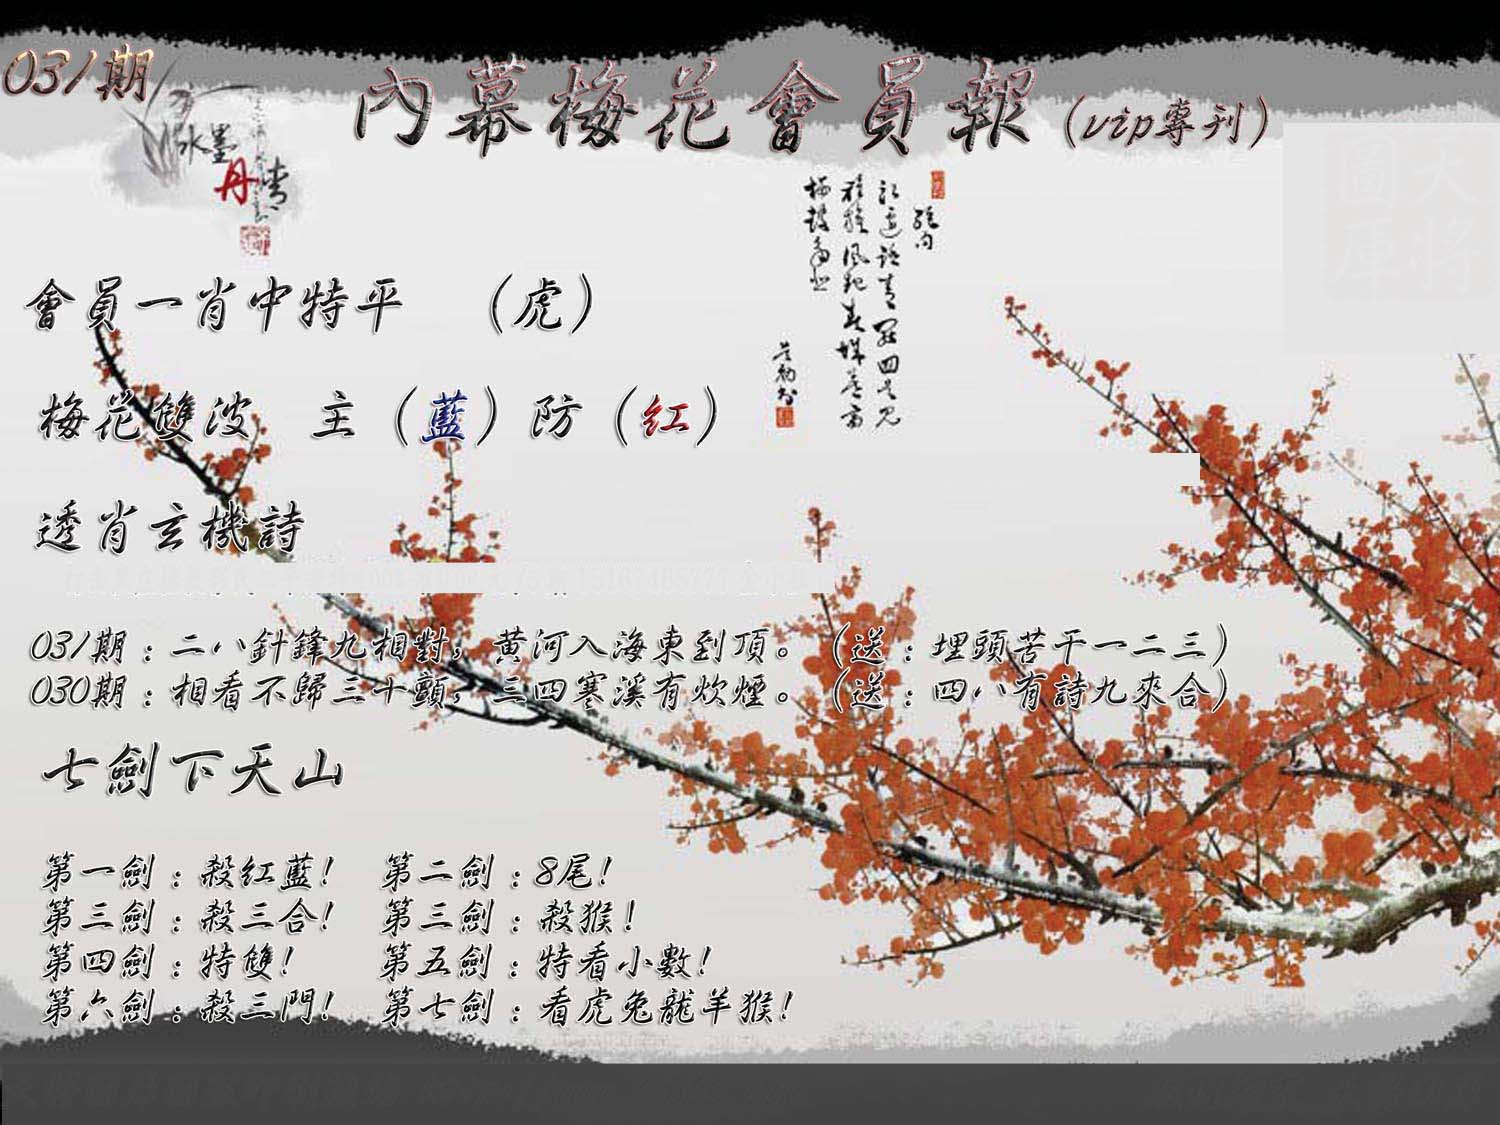 031期
內幕梅花會員報(vip專刊)
水墨
丹青
絕句
會員一肖中特平 (虎)
梅花雙波 主(藍)防(紅)
透肖玄機詩
031期：二八針鋒九相對，黃河入海東到頂。(送：埋頭苦干一二三)
030期：相看不歸三十顫，三四寒溪有炊煙。(送：四八有詩九來合)
七劍下天山
第一劍：殺紅藍! 第二劍：8尾!
第三劍：殺三合! 第三劍：殺猴!
第四劍：特雙! 第五劍：特看小數!
第六劍：殺三門! 第七劍：看虎兔龍羊猴!